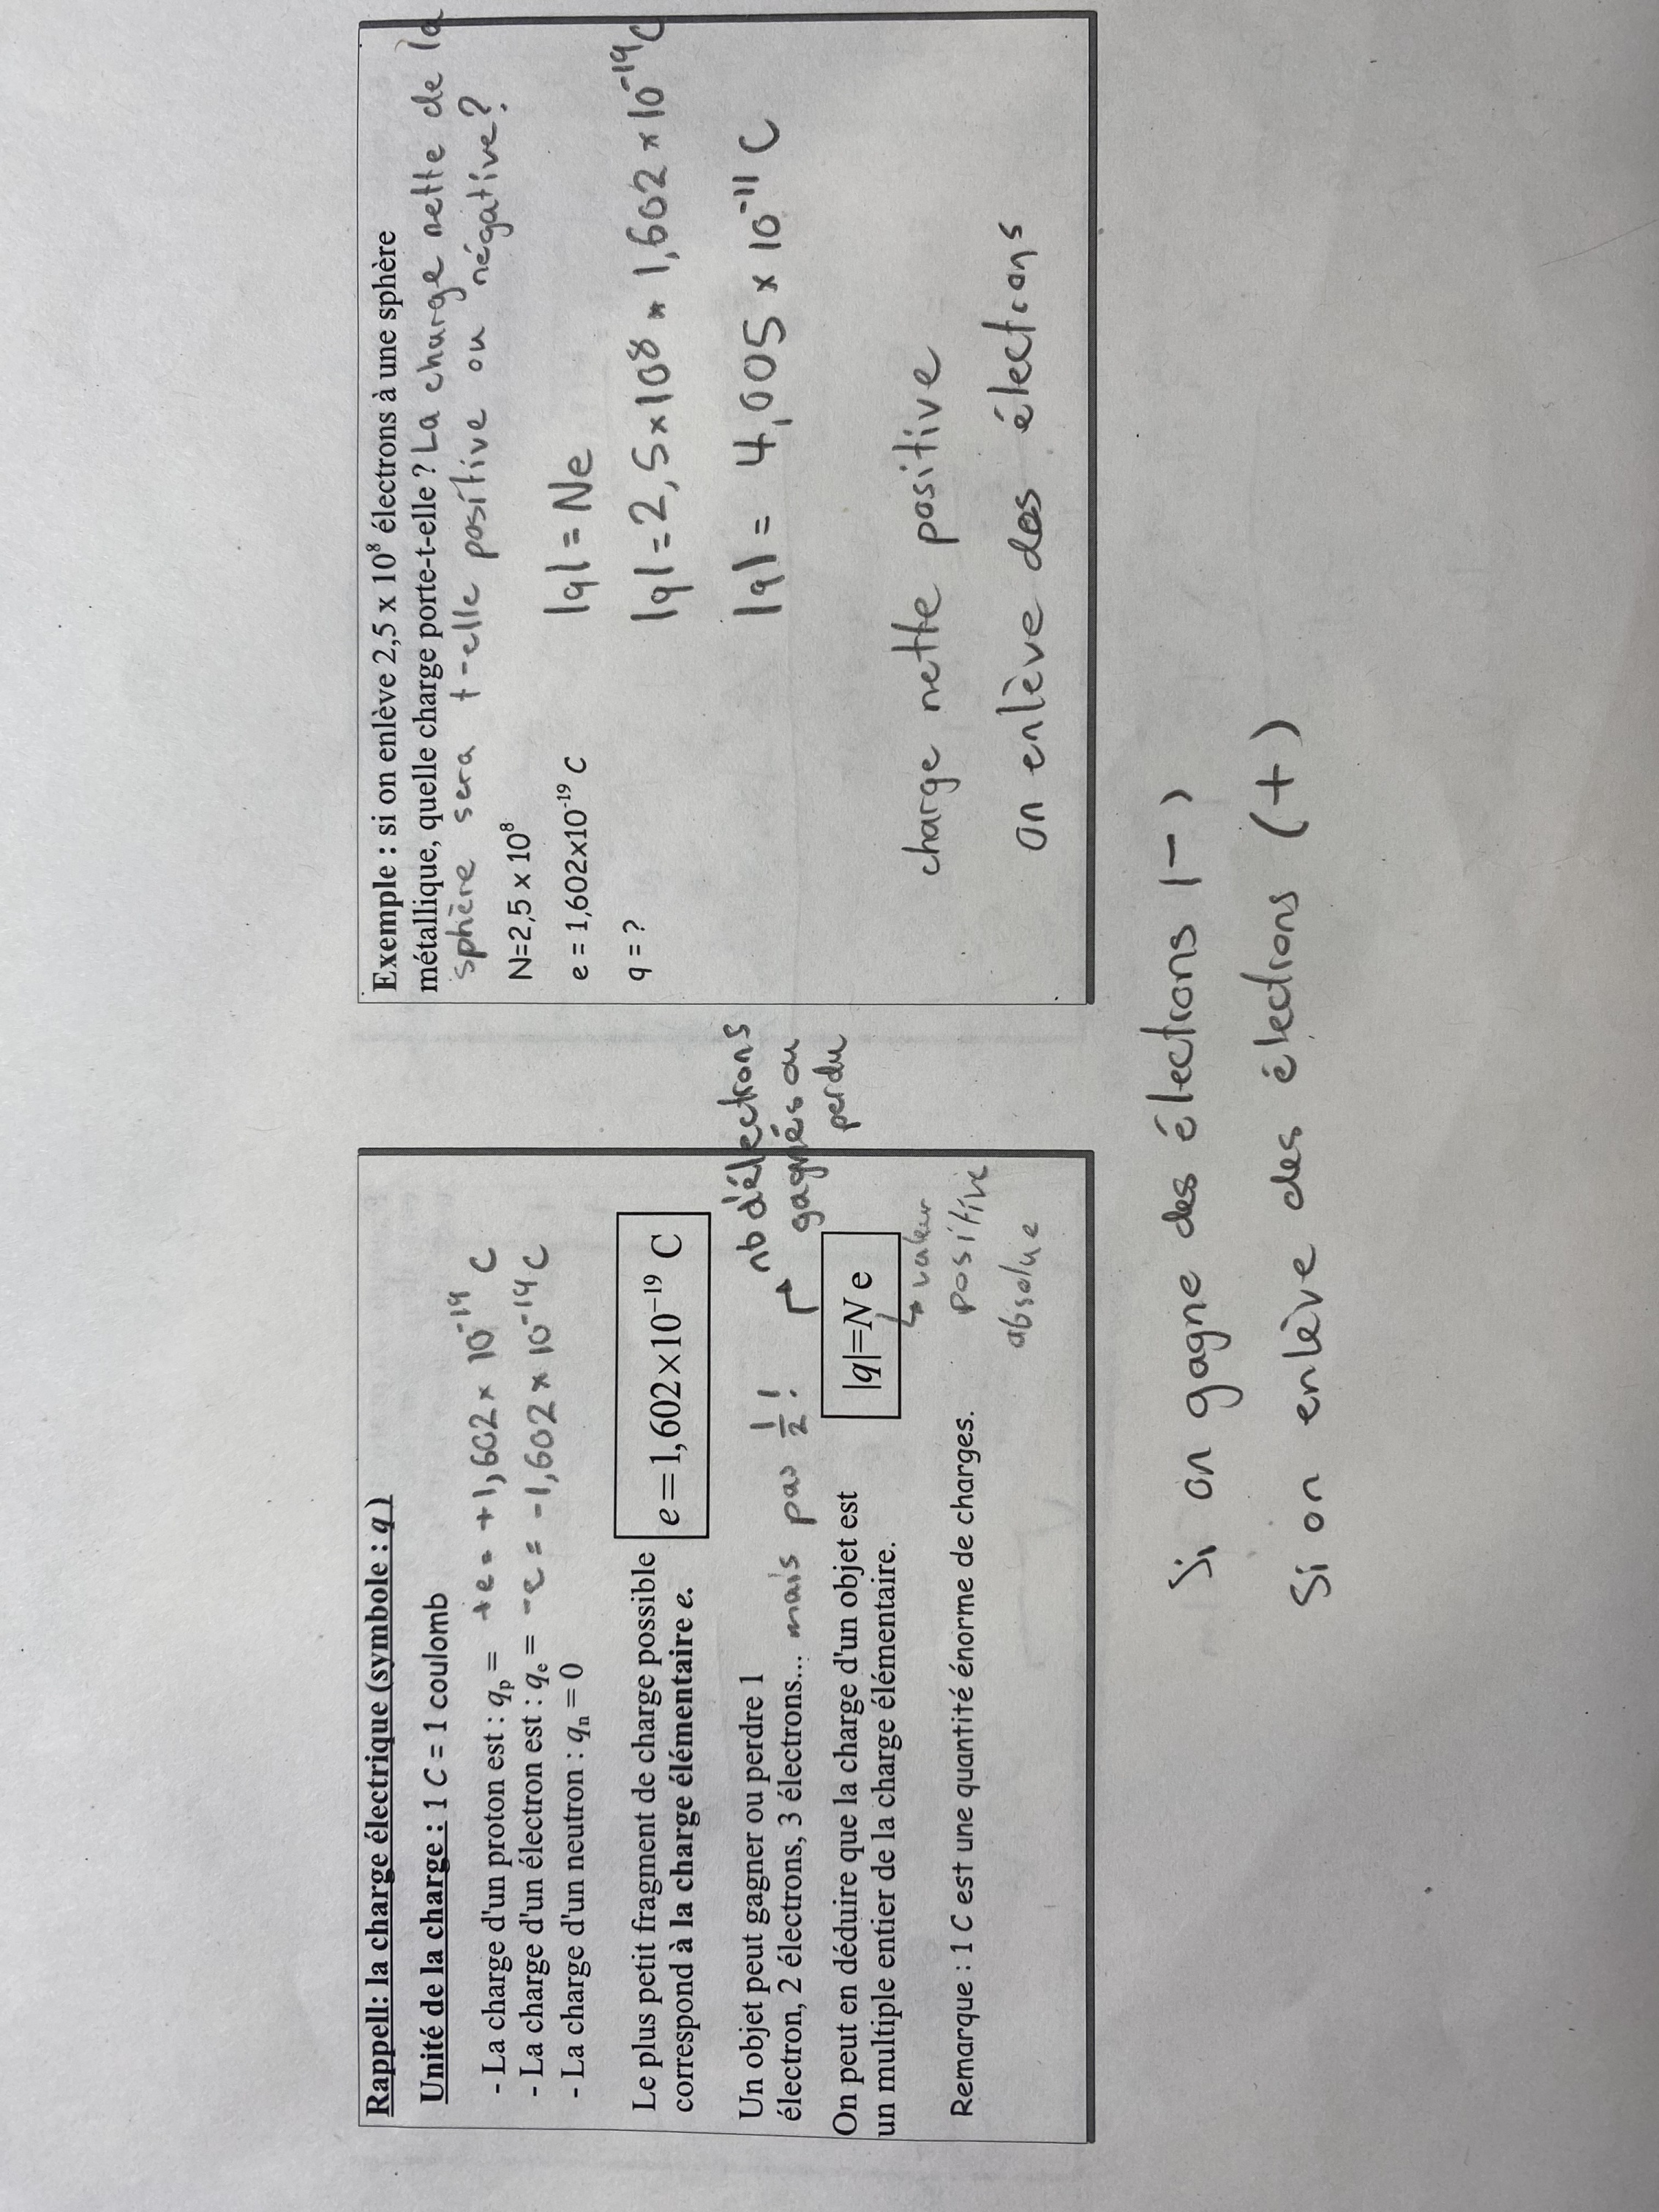 Rappell: la charge électrique (symbole : q )
Unité de la charge : 1 C = 1 coulomb
- La charge d'un proton est : qp = +e = +1,602 x 10⁻¹⁹ C
- La charge d'un électron est : qe = -e = -1,602 x 10⁻¹⁹ C
- La charge d'un neutron : qn = 0
Le plus petit fragment de charge possible
correspond à la charge élémentaire e.
e = 1,602×10⁻¹⁹ C
Un objet peut gagner ou perdre 1
électron, 2 électrons, 3 électrons... mais pas 1/2 !
nb d'électrons
gagnés ou
perdu
On peut en déduire que la charge d'un objet est
un multiple entier de la charge élémentaire.
|q|=N e
↳ valeur
positive
absolue
Remarque : 1 C est une quantité énorme de charges.
Exemple : si on enlève 2,5 x 10⁸ électrons à une sphère
métallique, quelle charge porte-t-elle ? La charge nette de la
sphère sera t-elle positive ou négative?
N=2,5 x 10⁸
e = 1,602x10⁻¹⁹ C
q = ?
|q| = Ne
|q| = 2,5 x 10⁸ x 1,602 x 10⁻¹⁹ C
|q| = 4,005 x 10⁻¹¹ C
charge nette positive
on enlève des électrons
Si on gagne des électrons (-)
Si on enlève des électrons (+)